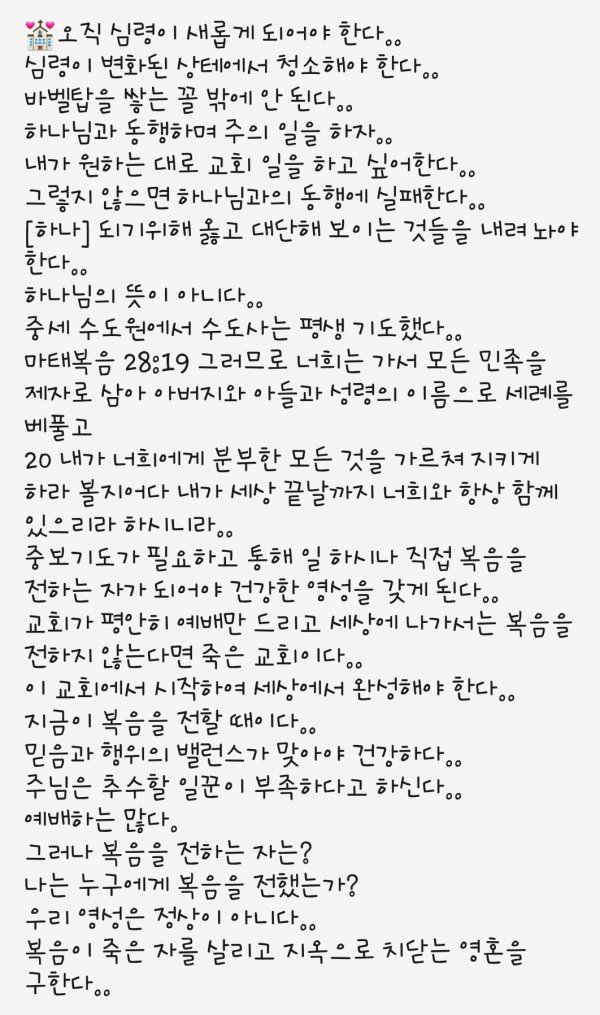 💒오직 심령이 새롭게 되어야 한다..
심령이 변화된 상테에서 청소해야 한다..
바벨탑을 쌓는 꼴 밖에 안 된다..
하나님과 동행하며 주의 일을 하자..
내가 원하는 대로 교회 일을 하고 싶어한다..
그렇지 않으면 하나님과의 동행에 실패한다..
[하나] 되기위해 옳고 대단해 보이는 것들을 내려 놔야
한다..
하나님의 뜻이 아니다..
중세 수도원에서 수도사는 평생 기도했다..
마태복음 28:19 그러므로 너희는 가서 모든 민족을
제자로 삼아 아버지와 아들과 성령의 이름으로 세례를
베풀고
20 내가 너희에게 분부한 모든 것을 가르쳐 지키게
하라 볼지어다 내가 세상 끝날까지 너희와 항상 함께
있으리라 하시니라..
중보기도가 필요하고 통해 일 하시나 직접 복음을
전하는 자가 되어야 건강한 영성을 갖게 된다..
교회가 평안히 예배만 드리고 세상에 나가서는 복음을
전하지 않는다면 죽은 교회이다..
이 교회에서 시작하여 세상에서 완성해야 한다..
지금이 복음을 전할 때이다..
믿음과 행위의 밸런스가 맞아야 건강하다..
주님은 추수할 일꾼이 부족하다고 하신다..
예배하는 많다.
그러나 복음을 전하는 자는?
나는 누구에게 복음을 전했는가?
우리 영성은 정상이 아니다..
복음이 죽은 자를 살리고 지옥으로 치닫는 영혼을
구한다..